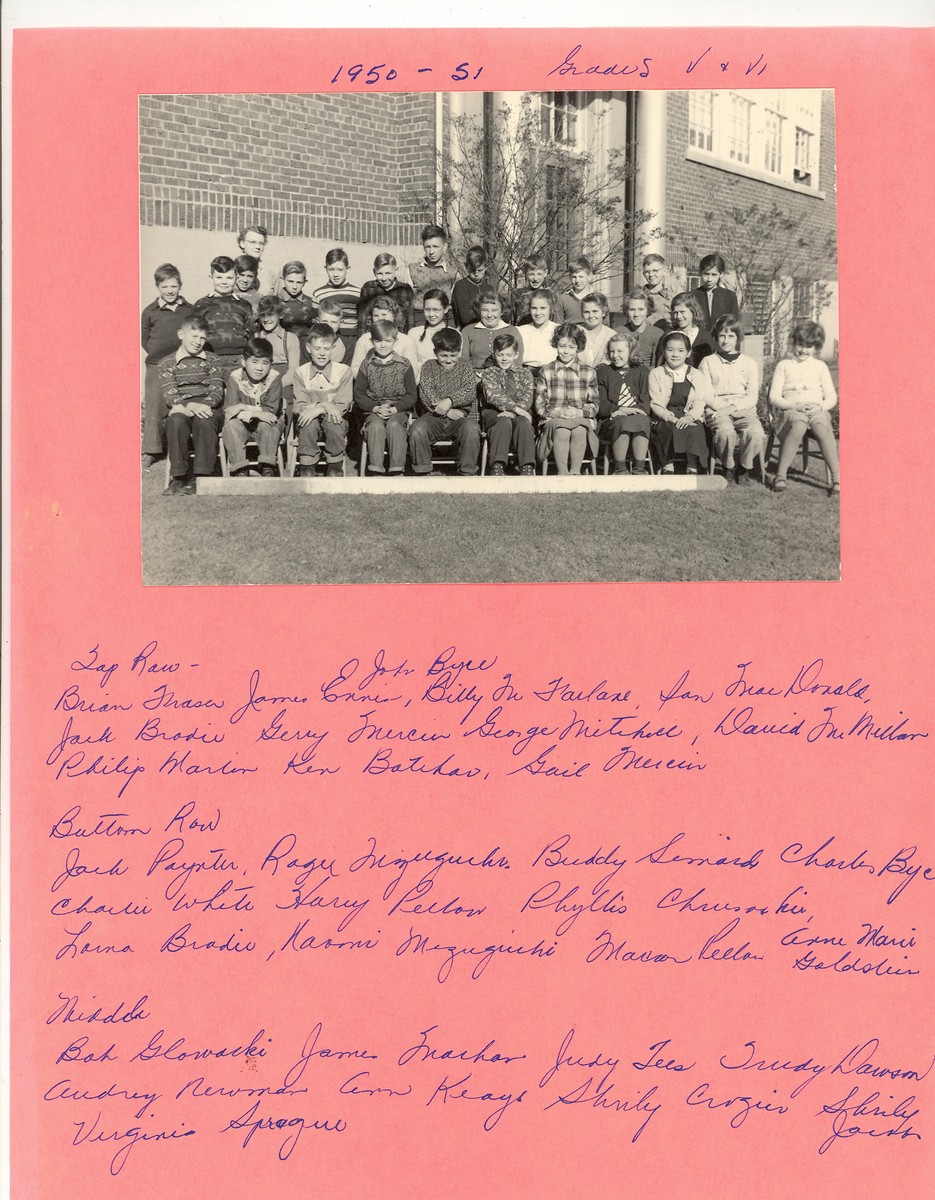 1950 - 51 Grades V & VI
Top Row -
John Byce
Brian Fraser James Ennis, Billy Mc Farlane, Ian Mac Donald,
Jack Brodie Gerry Mercier George Mitchell, David McMillan
Philip Martin Ken Gail Mercier
Bottom Row
Jack Paynter, Roger Mizuguchi. Buddy Simard Charles Byce
Charlie White Harry Pellow Phyllis
Lorna Brodie, Naomi Mizuguichi Pellow Anne Marie
Goldstein
Middle
Bob Glowacki James Judy Tees Trudy Dawson
Audrey Newman Ann Keays Shrily Crozier Shrily
Virginia Sprague